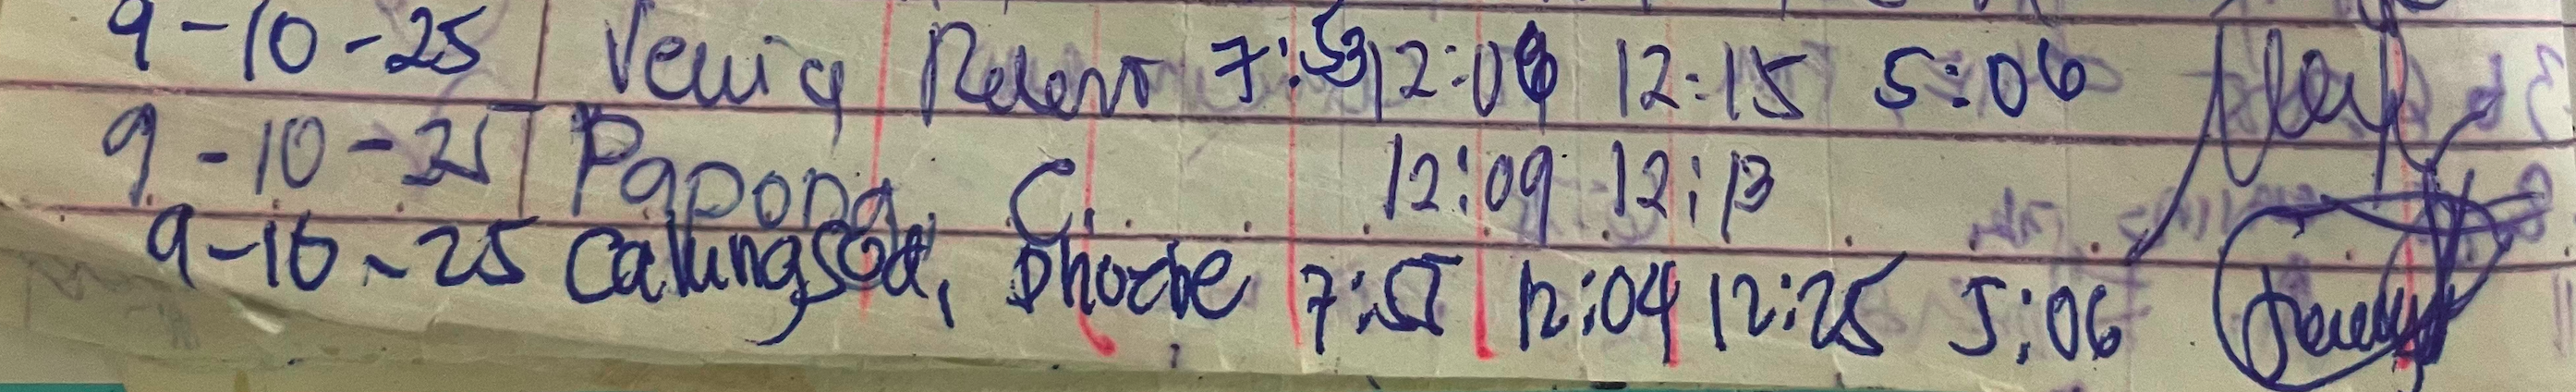 9-10-25 7:53 12:08 12:15 5:06
9-10-25 Papong, C. 12:09 12:13
9-10-25 Calungsod, Phoebe 7:55 12:04 12:25 5:06